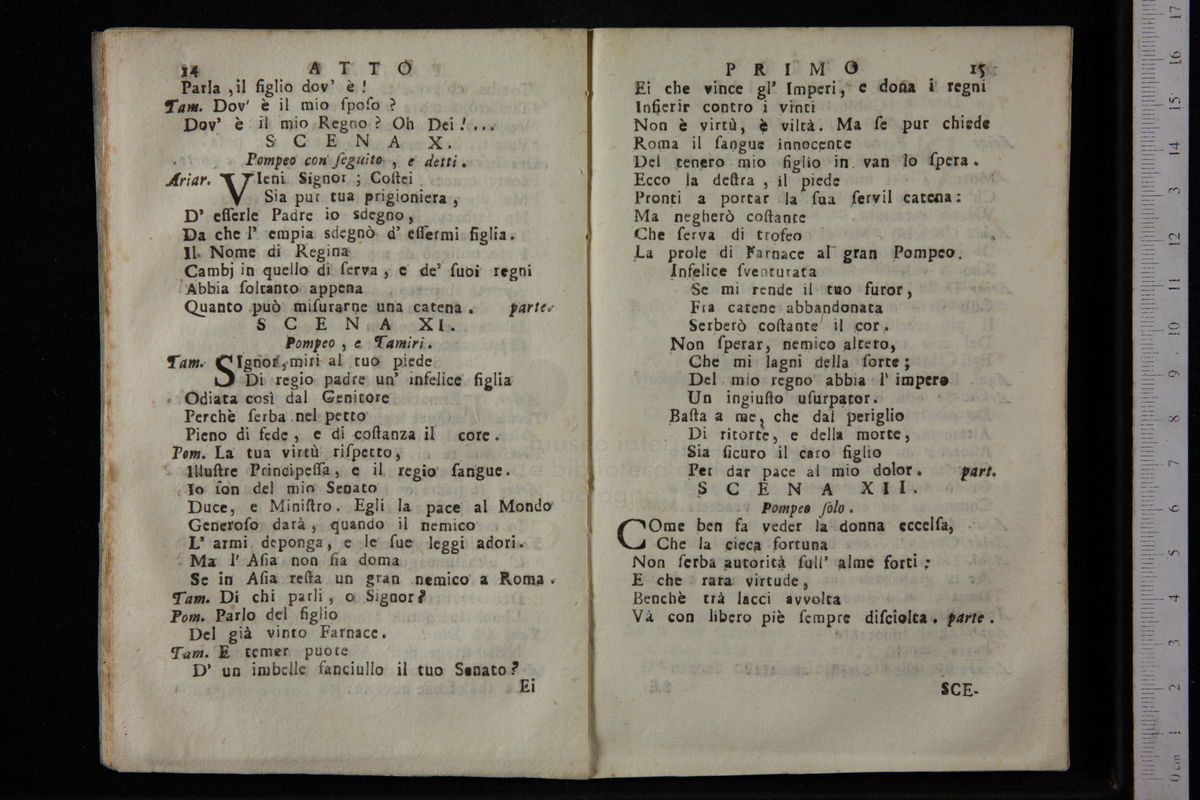 14 ATTO
Parla , il figlio dov' è !
Tam. Dov' è il mio sposo ?
Dov' è il mio Regno ? Oh Dei ! ...
SCENA X.
Pompeo con seguito , e detti .
Ariar. VIeni Signor ; Costei
Sia pur tua prigioniera ,
D' esserle Padre io sdegno ,
Da che l' empia sdegnò d' essermi figlia .
Il Nome di Regina
Cambj in quello di serva , e de' suoi regni
Abbia soltanto appena
Quanto può misurarne una catena . parte.
SCENA XI.
Pompeo , e Tamiri .
Tam. SIgnor, miri al tuo piede
Di regio padre un' infelice figlia
Odiata così dal Genitore
Perchè serba nel petto
Pieno di fede , e di costanza il core .
Pom. La tua virtù rispetto,
Illustre Principessa, e il regio sangue .
Io son del mio Senato
Duce, e Ministro. Egli la pace al Mondo
Generoso darà , quando il nemico
L' armi deponga , e le sue leggi adori.
Ma l' Asia non fia doma
Se in Asia resta un gran nemico a Roma .
Tam. Di chi parli , o Signor ?
Pom. Parlo del figlio
Del già vinto Farnace.
Tam. E temer puote
D' un imbelle fanciullo il tuo Senato ?
Ei
PRIMO 15
Ei che vince gl' Imperi, e dona i regni
Infierir contro i vinti
Non è virtù, è viltà. Ma se pur chiede
Roma il sangue innocente
Del tenero mio figlio in van lo spera .
Ecco la destra , il piede
Pronti a portar la sua servil catena :
Ma negherò costante
Che serva di trofeo
La prole di Farnace al gran Pompeo.
Infelice sventurata
Se mi rende il tuo furor,
Fra catene abbandonata
Serberò costante il cor .
Non sperar, nemico altero,
Che mi lagni della sorte ;
Del mio regno abbia l' impero
Un ingiusto usurpator.
Basta a me, che dal periglio
Di ritorte, e della morte,
Sia sicuro il caro figlio
Per dar pace al mio dolor . part.
SCENA XII.
Pompeo solo .
COme ben fa veder la donna eccelsa,
Che la cieca fortuna
Non serba autorità sull' alme forti ;
E che rara virtude ,
Benchè trà lacci avvolta
Và con libero piè sempre disciolta . parte .
SCE-